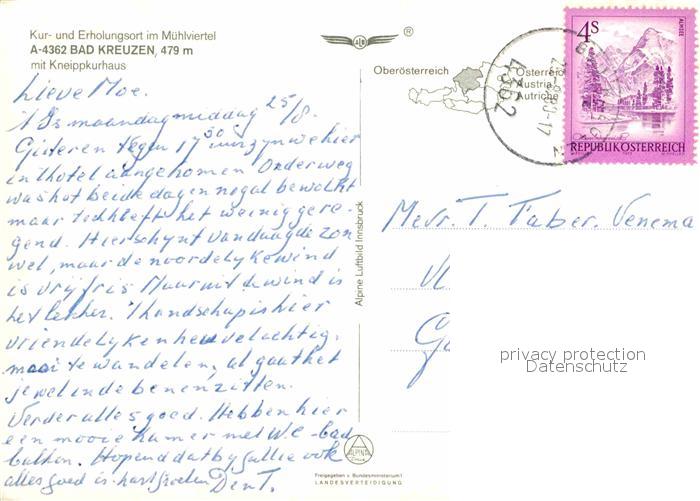 Kur- und Erholungsort im Mühlviertel
A-4362 BAD KREUZEN, 479 m
mit Kneippkurhaus
Lieve Moe.
't Is maandagmiddag 25/8.
Gisteren tegen 17.30 uur zyn we hier
in 't hotel aangenomen Onderweg
was hot beide dagen nogal bewolkt
maar toch heeft het weinig gere-
gend. Hier schynt vandaag de zon
wel, maar de noordelyke wind
is vry fris Maar uit de wind is
het lekker. 't Landschap is hier
vriendelyk en heuvelachtig,
mooi te wandelen, al gaat het
je wel in de benen zitten.
Verder alles goed. Hebben hier
een mooie kamer met W.C-bad
balkon. Hopen dat by jullie ook
alles goed is. hart groeten D en T.
®
Oberösterreich
Österreich
Austria
Autriche
4362
4S
ALMSEE
REPUBLIK ÖSTERREICH
Alpine Luftbild Innsbruck
Mevr. T. Faber-Venema
privacy protection
Datenschutz
ALPINE
Freigegeben v. Bundesministerium f.
LANDESVERTEIDIGUNG